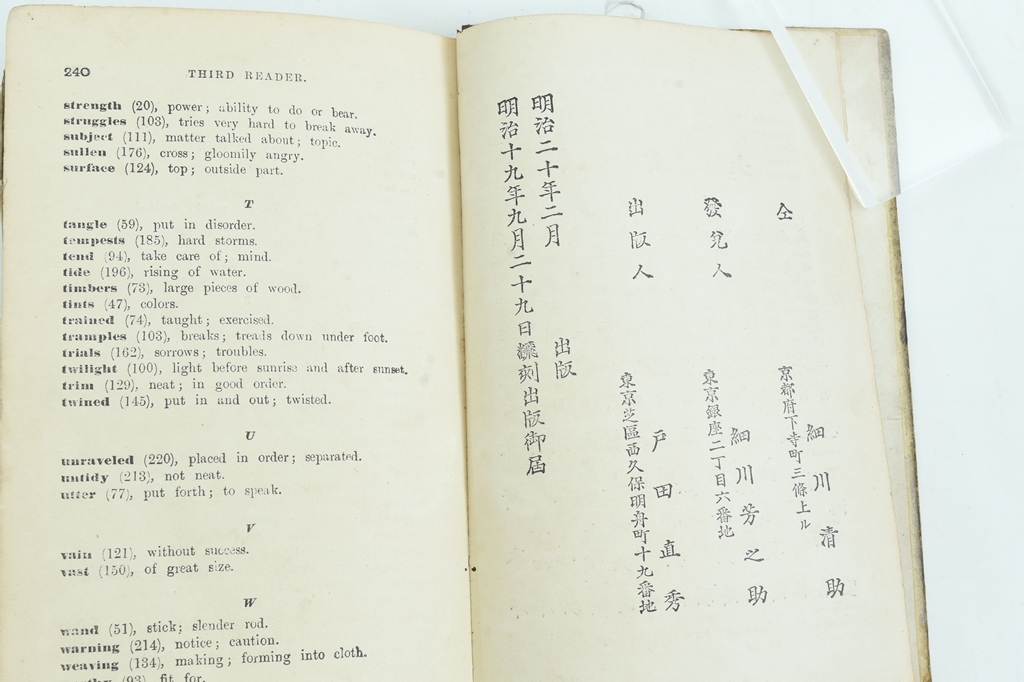 240 THIRD READER.
strength (20), power; ability to do or bear.
struggles (103), tries very hard to break away.
subject (111), matter talked about; topic.
sullen (176), cross; gloomily angry.
surface (124), top; outside part.
T
tangle (59), put in disorder.
tempests (185), hard storms.
tend (94), take care of; mind.
tide (196), rising of water.
timbers (73), large pieces of wood.
tints (47), colors.
trained (74), taught; exercised.
tramples (103), breaks; treads down under foot.
trials (162), sorrows; troubles.
twilight (100), light before sunrise and after sunset.
trim (129), neat; in good order.
twined (145), put in and out; twisted.
U
unraveled (220), placed in order; separated.
untidy (213), not neat.
utter (77), put forth; to speak.
V
vain (121), without success.
vast (150), of great size.
W
wand (51), stick; slender rod.
warning (214), notice; caution.
weaving (134), making; forming into cloth.
(93), fit for.
明治十九年九月二十九日飜刻出版御届
明治二十年二月 出版
出版人
東京芝區西久保明舟町十九番地
戸田直秀
發兌人
東京銀座二丁目六番地
細川芳之助
仝
京都府下寺町三條上ル
細川清助